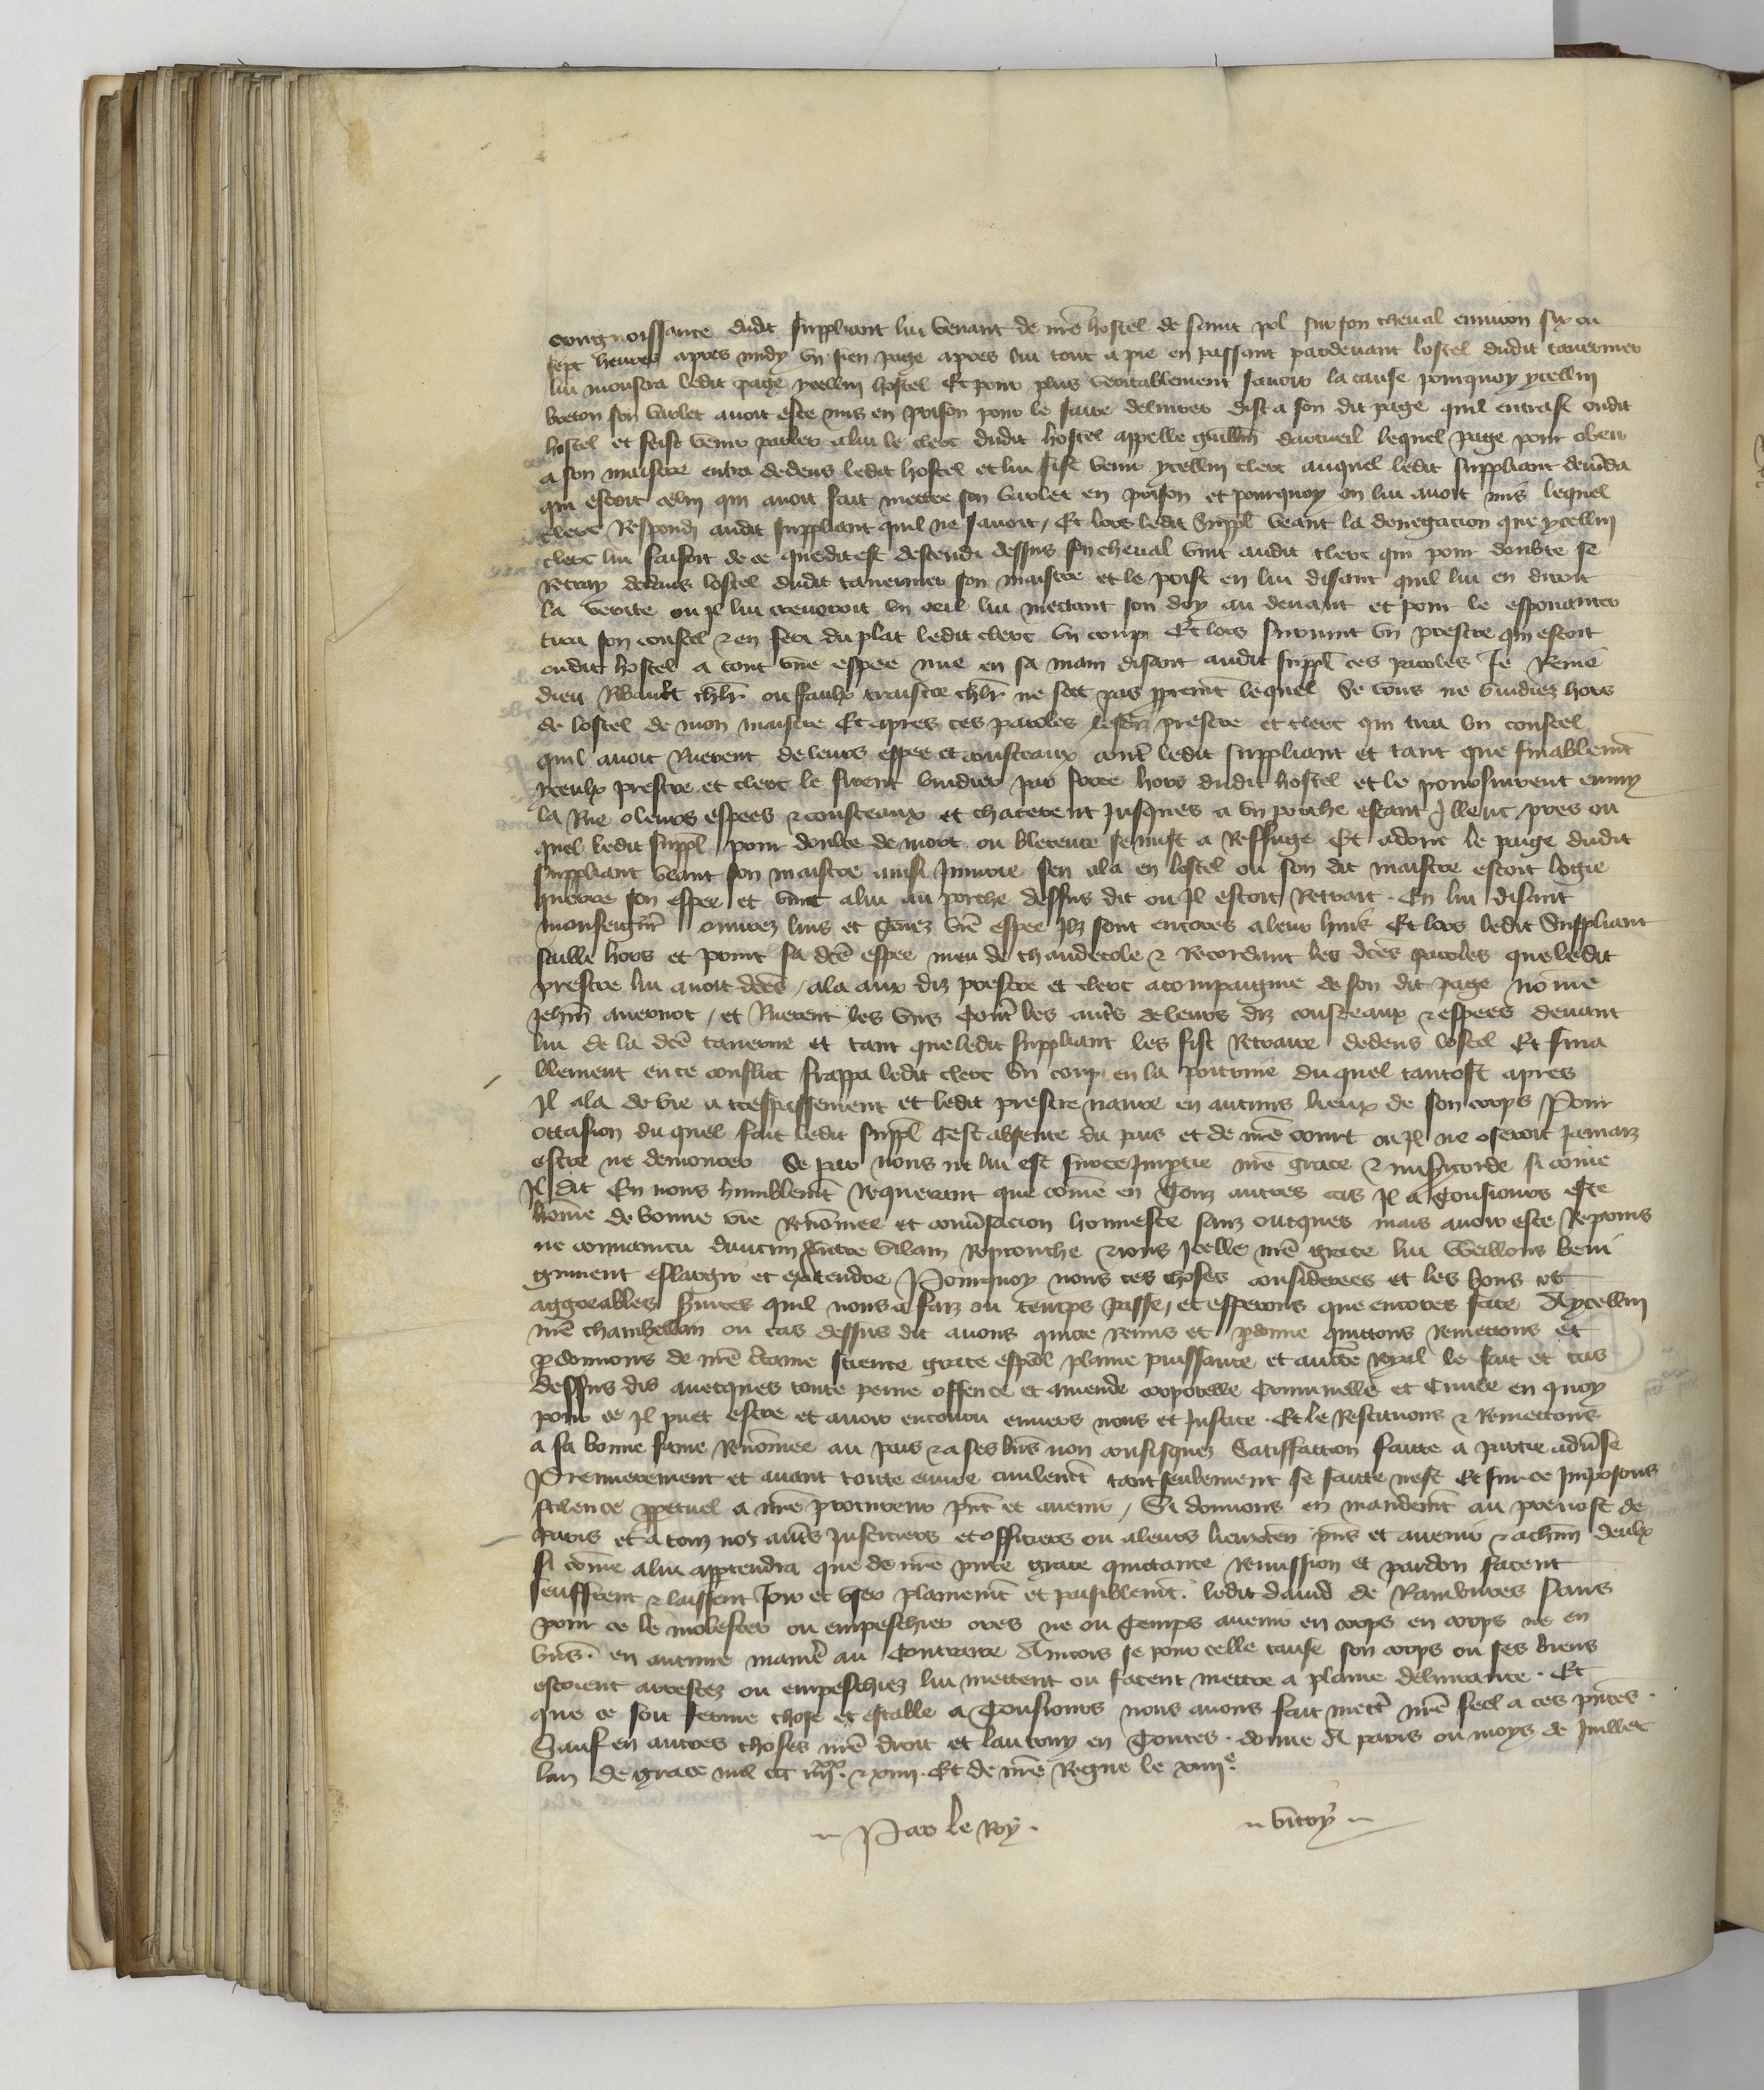 congnoissance dudit suppliant lui venant de nr̄e hostel de saint pol sur son cheval environ six ou
sept heures apres midy un sien page apres lui tout a pie en passant pardevant lostel dudit tavernier
lui monstra ledit page ycellui hostel Et pour plus veritablement savoir la cause pourquoy ycellui
breton son varlet avoit este mis en prison pour le faire delivrer dist a son dit page quil entrast oudit
hostel et feist venir parler a lui le clerc dudit hostel appelle guill̄m dartueil lequel page pour obeir
a son maistre entra dedens ledit hostel et lui fist venir ycellui clerc auquel ledit suppliant demāda
qui estoit celui qui avoit fait mettre son varlet en prison et pourquoy on lui avoit mis lequel
clerc Respondi audit suppliant quil ne savoit / Et lors ledit suppl̄ veant la denegacion que ycellui
clerc lui faisoit de ce que dit est descendi dessus son cheval vint audit clerc qui pour doubte se
Retray dedans lostel dudit tavernier son maistre et le prist en lui disant quil lui en diroit
la verite ou Il lui creveroit un oeil lui mectant son doy au devant et pour le espouanter
tira son coustel & en feri du plat ledit clerc un coup Et lors survint un prestre qui estoit
oudit hostel a tout une espee nue en sa main disant audit suppl̄ ces paroles Je Renie
dieu Ribault chlr̄ ou faulx traistre chlr̄ ne scet pas lequel Se vous ne vuidiez hors
de lostel de mon maistre Et apres ces paroles lesdiz prestre et clerc qui tira un coustel
quil avoit Ruerent de leurs espee et cousteaux contr̄ ledit suppliant et tant que finablemēt
yceulx prestre et clerc le firent vuidier par force hors dudit hostel et le poursuirent emmy
la Rue o leurs espees & cousteaux et chacerent Jusques a un porche estant Illeuc pres ou
quel ledit suppl̄ pour doubte de mort ou bleceure se mist a Reffuge Et adont le paige dudit
suppliant veant son maistre ainsi Injurie sen ala en lostel ou son dit maistre estoit logie
querre son espee et vint a lui au porche dessus dit ou Il estoit Retrait . En lui disant
monseignr̄ ouvrez luis et tenez vr̄e espee Ilz sont encores a leur huis Et lors ledit Suppliant
sailli hors et print sa dc̄e espee meu de chaudecole & Recordant les dc̄es paroles que ledit
prestre lui avoit dictes / ala aux diz prestre et clerc acompaignie de son dit page nōme
Jehan̄ avernot / et Ruerent les uns contr̄ les autr̄s de leurs diz cousteaux & espees devant
lui de la dc̄e taverne et tant que ledit suppliant les fist Retraire dedens lostel Et fina
blement en ce conflict frappa ledit clerc un coup en la poitrine du quel tantost apres
Il ala de vie a trespassement et ledit prestre navre en aucuns lieux de son corps Pour
occasion du quel fait ledit suppl̄ sest absente du pais et de nr̄e court ou Il ne oseroit Jamaiz
estre ne demourer Se par nous ne lui est sur ce Impartie nr̄e grace & misericorde si come
Il dit En nous humblemēt Requerant que come en touz autres cas Il a tousjours este
home de bonne vie Renōmee et convsacion honneste sanz oncques mais avoir este Repris
ne convaincu daucun autre vilain Reprouche & nous Icelle nr̄e grace lui veillions beni
gnment eslargir et extendre Pourquoy nous ces choses considerees et les bons et
aggreables services quil nous a faiz ou temps passe / et esperons que encores face A ycellui
nr̄e chambellan ou cas dessus dit avons quicte Remis et pdonne quictons Remettons et
pdonnons de nr̄e certaine science grace esp̄al plaine puissance et auctorite Royal le fait et cas
dessus dis avecques toute peine offense et amende corporelle Criminelle et Civile en quoy
pour ce Il puet estre et avoir encouru envers nous et Justice . Et le Restituons & Remettons
a sa bonne fame Renōmee au pais & a ses biēs non confisquez Satiffaction faicte a partie adv̄se
Premierement et avant toute euvre civilemēt tant seulement se faicte nest Et sur ce Imposons
silence ppetuel a nr̄e procureur pn̄t et avenir / Si donnons en mandemēt au prevost de
paris et a touz noz autr̄s Justiciers et officiers ou a leurs lieuxten̄ pn̄s et avenir & a chun̄ deulx
si come a lui apptendra que de nr̄e pn̄te grace quictance Remission et pardon facent
seuffrent & laissent Joir et user plainemēt et paisiblemēt . ledit david de Rambures Sans
pour ce le molester ou empeschier ores ne ou temps avenir en corps en corps ne en
biēs . en aucune maniē au contraire Aincois se pour celle cause son corps ou ses biens
estoient arrestez ou empeschiez lui mettent ou facent mettre a plaine delivrance . Et
que ce soit ferme chose et estable a Tousjours nous avons fait mettr̄ nr̄e seel a ces pn̄tes .
Sauf en autres choses nr̄e droit et lautruy en Toutes . donne A paris ou moys de Juillet
lan de grace mil ccc iiiixx. & xiiii . Et de nr̄e Regne le xiiiie.
Par le Roy .
vitry